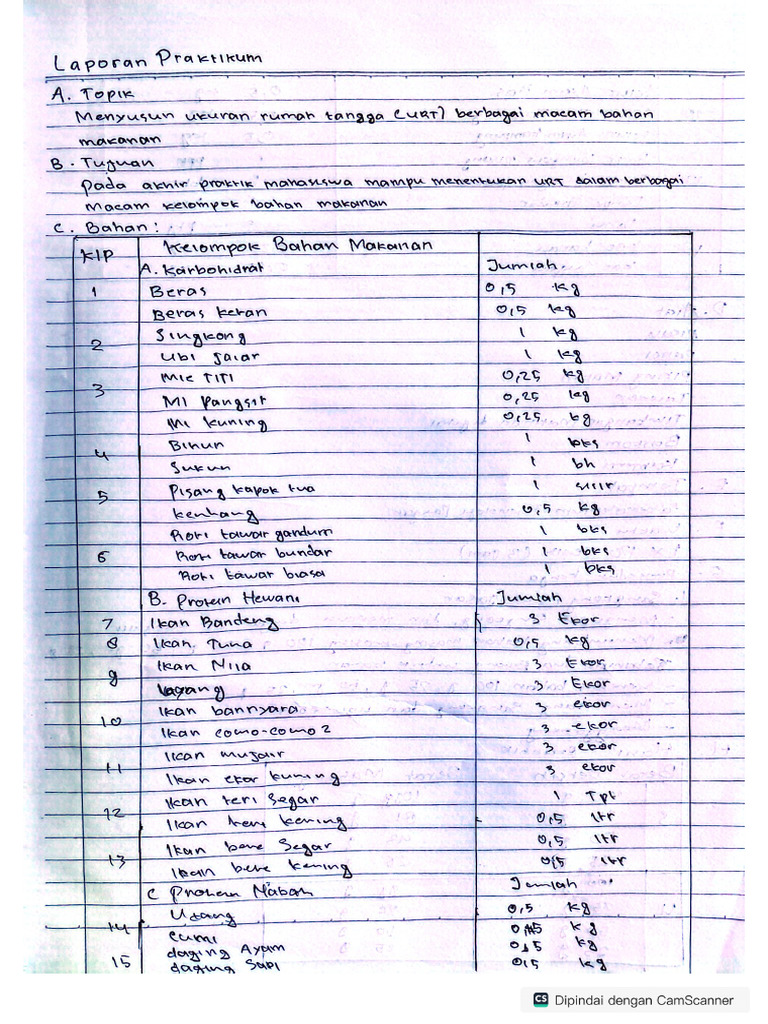 Laporan Praktikum
A. Topik
Menyusun ukuran rumah tangga (URT) berbagai macam bahan
makanan
B. Tujuan
Pada akhir praktik mahasiswa mampu menentukan URT dalam berbagai
macam kelompok bahan makanan
C. Bahan :
KlP Kelompok Bahan Makanan
A. Karbohidrat Jumlah.
1 Beras 0,5 kg
Beras ketan 0,5 kg
2 Singkong 1 kg
Ubi Jalar 1 kg
Mie TITI 0,25 kg
3 MI Pangsit 0,25 kg
Mi kuning 0,25 kg
Bihun 1 bks
4 Sukun 1 bh
5 Pisang kapok tua 1 sisir
kentang 0,5 kg
Roti tawar gandum 1 bks
6 Roti tawar bundar 1 bks
Roti tawar biasa 1 bks
B. Protein Hewani Jumlah
7 Ikan Bandeng 3 Ekor
8 Ikan Tuna 0,5 kg
Ikan Nila 3 Ekor
9 Layang 3 Ekor
Ikan bannyara 3 ekor
10 Ikan como-como 2 3 ekor
Ikan mujair 3 ekor
11 Ikan ekor kuning 3 ekor
Ikan teri segar 1 Tpt
12 Ikan teri kering 0,5 ltr
Ikan bere Segar 0,5 ltr
13 Ikan bere kering 0,5 ltr
C Protein Nabati Jumlah
Udang 0,5 kg
14 cumi kg
daging Ayam 0,5 kg
15 daging Sapi 0,5 kg
CS Dipindai dengan CamScanner